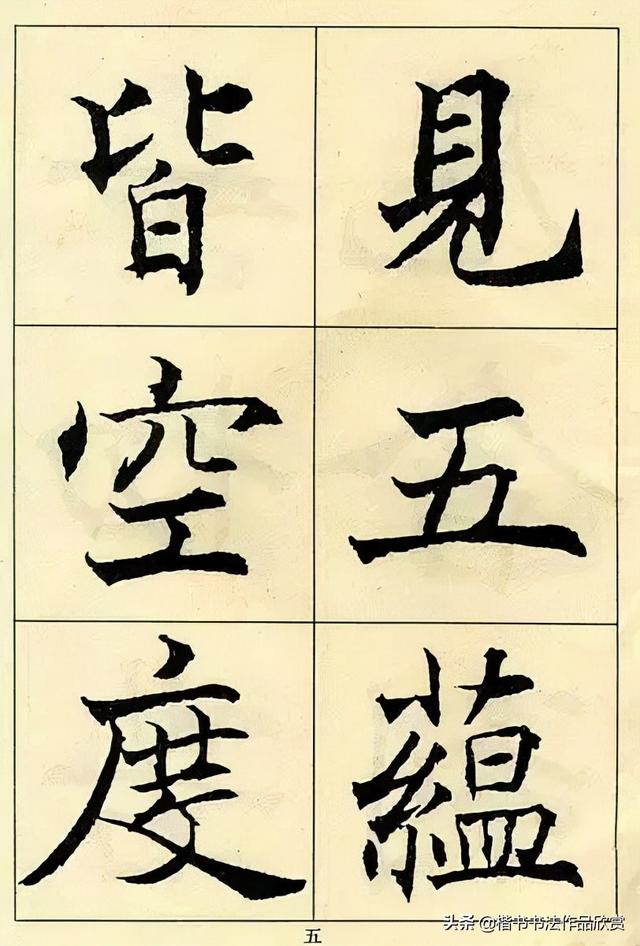 見五蘊
皆空度
五
头条 @楷书书法作品欣赏